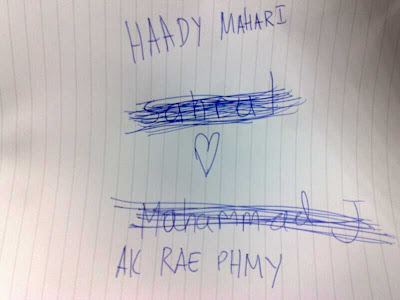 HAADY MAHARI
Mahammad J
AK RAE PHMY